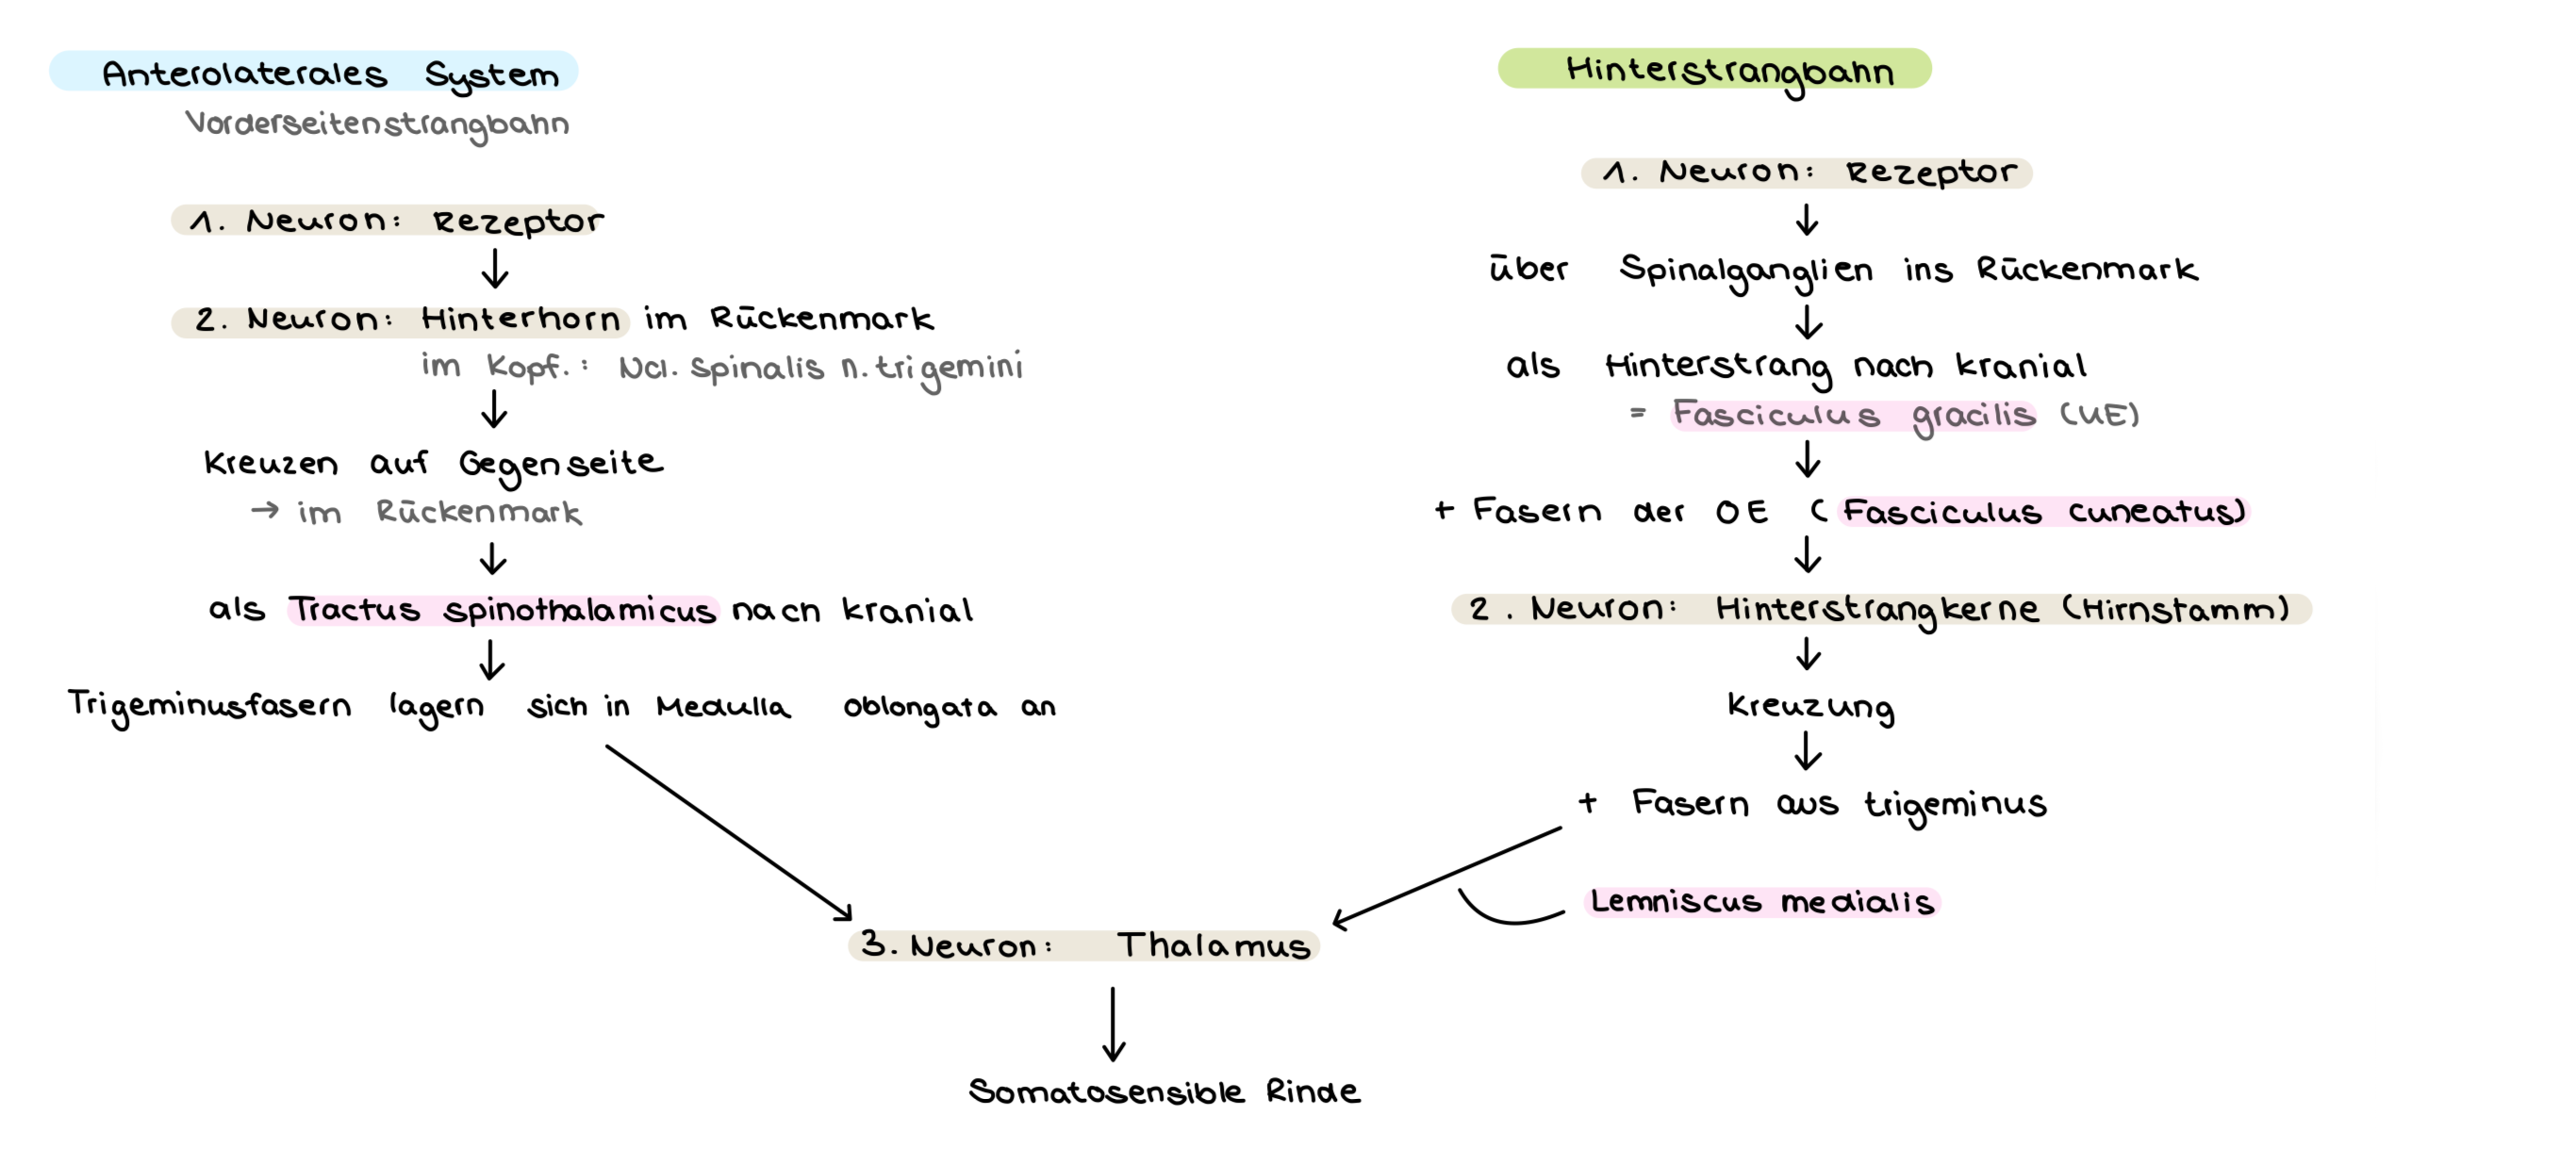 Anterolaterales System
Vorderseitenstrangbahn
1. Neuron: Rezeptor
2. Neuron: Hinterhorn im Rückenmark
im Kopf.: Ncl. spinalis n. trigemini
Kreuzen auf Gegenseite
→ im Rückenmark
als Tractus spinothalamicus nach kranial
Trigeminusfasern lagern sich in Medulla oblongata an
Hinterstrangbahn
1. Neuron: Rezeptor
über Spinalganglien ins Rückenmark
als Hinterstrang nach kranial
= Fasciculus gracilis (UE)
+ Fasern der OE (Fasciculus cuneatus)
2. Neuron: Hinterstrangkerne (Hirnstamm)
Kreuzung
+ Fasern aus trigeminus
Lemniscus medialis
3. Neuron: Thalamus
Somatosensible Rinde